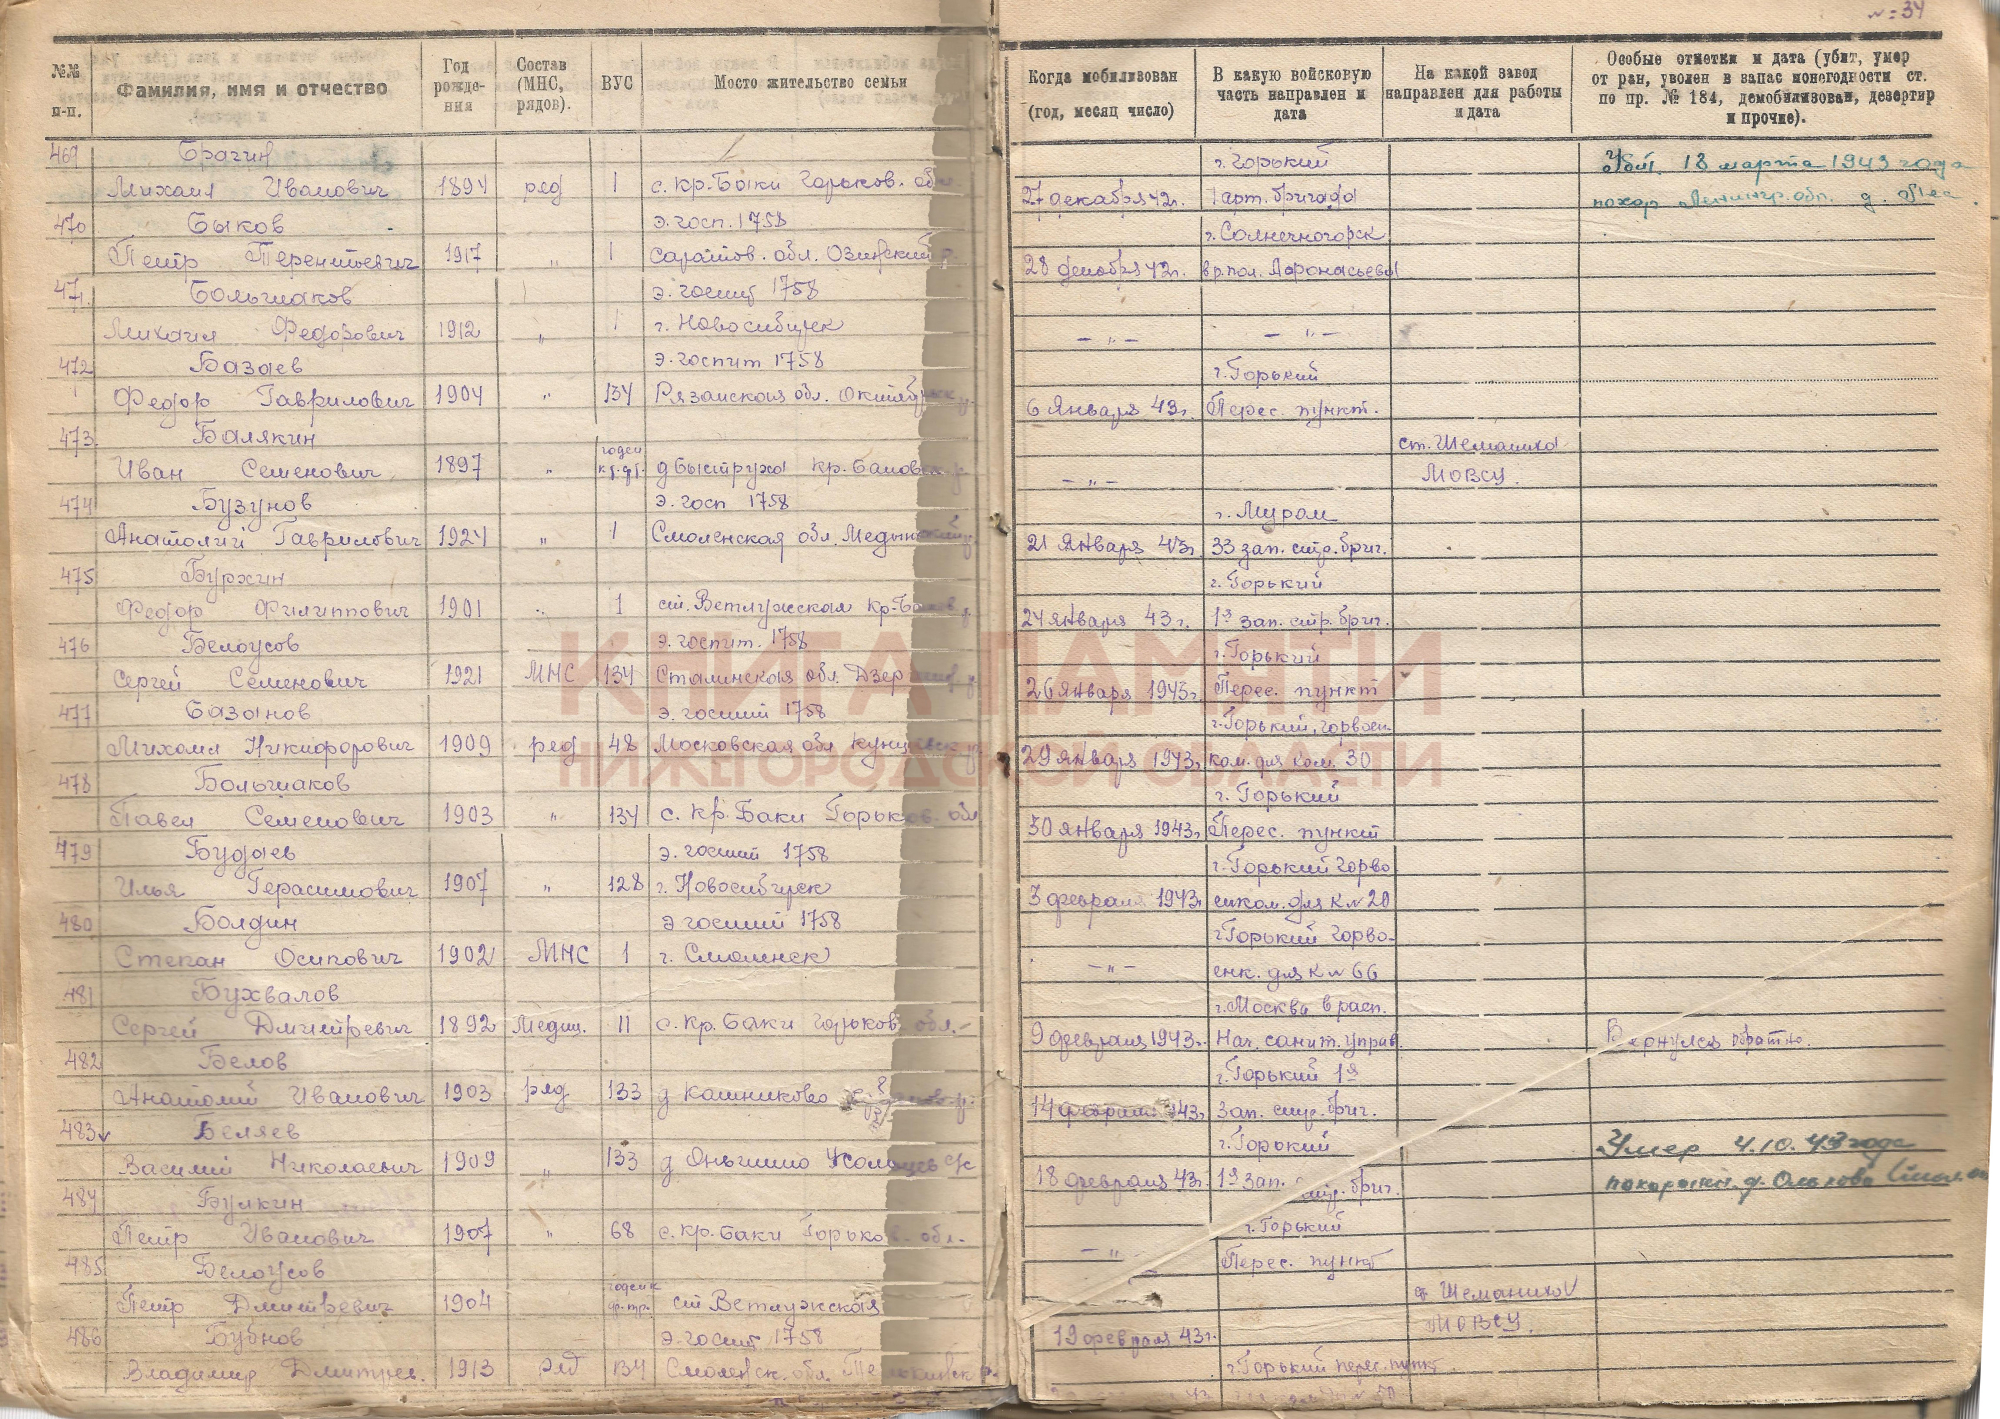 № 34
№№ п-п.
Фамилия, имя и отчество
Год рожде-ния
Состав (МНС, рядов).
ВУС
Место жительство семьи
Когда мобилизован (год, месяц число)
В какую войсковую часть направлен и дата
На какой завод направлен для работы и дата
Особые отметки и дата (убит, умер от ран, уволен в запас по негодности ст. по пр. № 184, демобилизован, дезертир и прочие).
469 Брагин г. Горький Убит. 18 марта 1943 года
Михаил Иванович 1894 ряд 1 с. Кр. Баки Горьков. обл. 27 декабря 42г. 1 арт. бригада похор. Ленингр. обл. д.
470 Быков э. госп. 1758 г. Солнечногорск
Петр Терентьевич 1917 „ 1 Саратов. обл. Озинский р. 28 декабря 42г. в р. пол. Афонасьева
471. Большаков э. госпит 1758
Михаил Федорович 1912 „ 1 г. Новосибирск – „ – – „ –
472 Базаев э. госпит 1758 г. Горький
Федор Гаврилович 1904 „ 134 Рязанская обл. Октябрьск 6 Января 43г. Перес. пункт.
473. Балякин ст. Шеманиха
Иван Семенович 1897 „ годен к ф. тр. д Быструха Кр. Баковск. р – „ – МОВСУ.
474 Бузунов э. госп 1758 г. Муром
Анатолий Гаврилович 1924 „ 1 Смоленская обл. Медынский 21 Января 43г. 33 зап. стр. бриг.
475 Бурхин г. Горький
Федор Филиппович 1901 „ 1 ст. Ветлужская Кр-Баков. р 24 Января 43 г. 1я зап. стр. бриг.
476 Белоусов э. госпит. 1758 г. Горький
Сергей Семенович 1921 МНС 134 Сталинская обл. 26 Января 1943г. Перес. пункт
477 Базанов э. госпит 1758 г. Горький, горвоен
Михаил Никифорович 1909 ряд 48 Московская обл Кунцевск р 29 Января 1943г. ком. для ком. 30
478 Большаков г. Горький
Павел Семенович 1903 „ 134 с. Кр. Баки Горьков. обл 30 января 1943г. Перес. пункт
479 Будаев э. госпит 1758 г. Горький Горво
Илья Герасимович 1907 „ 128 г. Новосибирск 3 февраля 1943г. енком. для К № 20
480 Болдин э госпит 1758 г. Горький Горво-
Степан Осипович 1902 МНС 1 г. Смоленск – „ – енк. для К № 66
481 Бухвалов г. Москва в расп.
Сергей Дмитревич 1892 Медиц. 11 с. Кр. Баки Горьков. обл. 9 февраля 1943г. Нач. санит. управ. Вернулся обратно.
482 Белов г. Горький 1я
Анатолий Иванович 1903 ряд 133 д Кошниково 14 февраля 43г. Зап. стр. бриг.
483 Беляев г. Горький Умер 4.10.43 года
Василий Николаевич 1909 „ 133 д с/с 18 февраля 43г. 1я зап. стр. бриг. похоронен д.
484 Булкин г. Горький
Петр Иванович 1907 „ 68 с. Кр. Баки Горьков. обл. – „ – Перес. пункт
485 Белоусов
Петр Дмитревич 1904 годен к ф. тр. ст Ветлужская – „ – ст Шеманиха МОВСУ.
486 Бубнов э. госпит 1758 19 февраля 43г.
Владимир Дмитриев. 1913 ряд 134 Смоленск. обл. г. Горький перес. пункт
КНИГА ПАМЯТИ
НИЖЕГОРОДСКОЙ ОБЛАСТИ